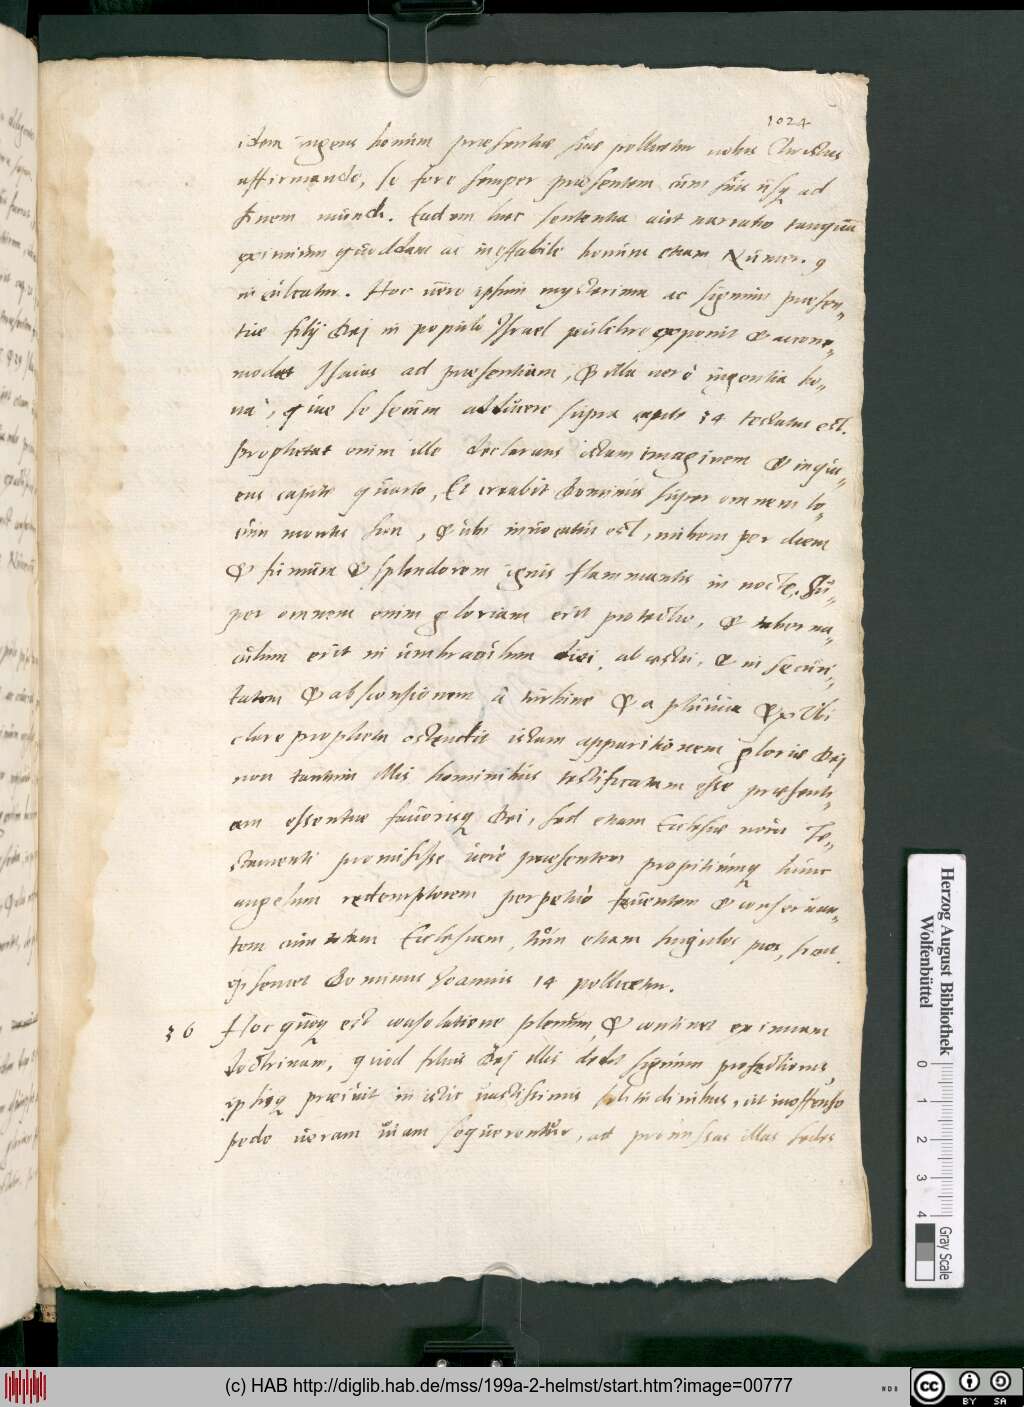 1024
idem ingens bonum præsentiæ suæ pollicetur nobis Christus
affirmando, se fore semper præsentem cum suis usq ad
finem mundi. Eadem hæc sententia aut narratio tanquam
eximium quoddam ac ineffabile bonum etiam Numer. 9
inculcatur. Hoc vero ipsum mysterium ac signum præsen„
tiæ filij Dej in populo Israel pulchre exponit & accom„
modat Isaias ad præsentiam, & illa vero ingentia bo„
na, quæ se secum adducere supra capite 14 testatus est.
Propheta enim ille declarans istam imaginem & inqui„
ens capite quarto, Et creabit Dominus super omnem lo„
cum montis Sion, & ubi invocatus est, nubem per diem
& fumum & splendorem ignis flammantis in nocte. Su„
per omnem enim gloriam erit protectio, & taberna„
culum erit in umbraculum diei, ab æstu, & in securi„
tatem & absconsionem à turbine & a pluvia &c. Ubi
clare propheta ostendit istam apparitionem gloriæ Dej
non tantum illis hominibus testificatam esse præsenti„
am essentiæ favorisq Dei, sed etiam Ecclesiæ novi Te„
stamenti promisisse vere præsentem propitiumq hunc
angelum redemptorem perpetuò faventem & conservan„
tem cum totam Ecclesiam, tum etiam singulos pios, sicut
ipsemet Dominus Joannis 14 pollicetur.
36 Hoc quoq est consolatione plenum, & continet eximiam
doctrinam, quod filius Dej illis dedit signum profectionis,
ipsisq præivit in istis vastissimis solitudinibus, ut inoffenso
pede veram viam sequerentur, ad promissas illas sedes
Herzog August Bibliothek
Wolfenbüttel
0 1 2 3 4
Gray Scale
(c) HAB http://diglib.hab.de/mss/199a-2-helmst/start.htm?image=00777
cc BY SA